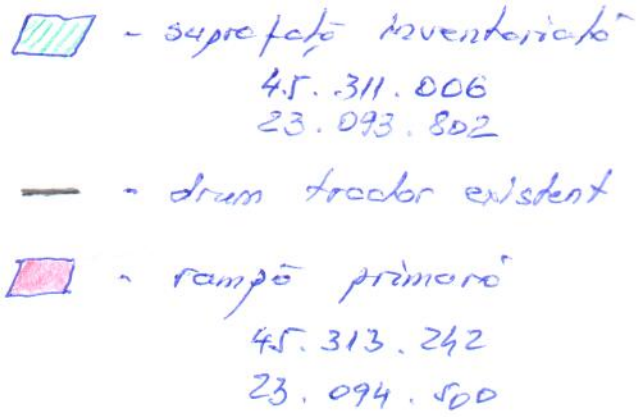 - suprafață inventariată
45.311.006
23.093.802
- drum tractor existent
- rampă primară
45.313.242
23.094.500